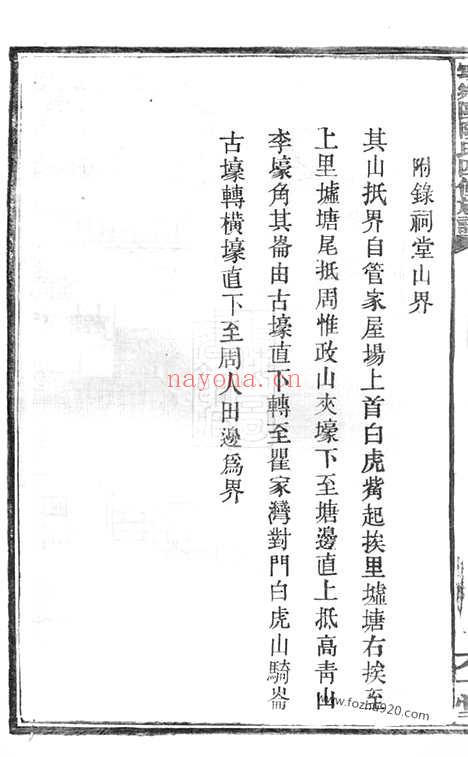 附錄祠堂山界
其山抵界自管家屋場上首白虎觜起挨里墟塘右挨至
上里墟塘尾抵周惟政山夾壕下至塘邊直上抵高靑山
李壕角其崙由古壕直下轉至瞿家灣對門白虎山騎崙
古壕轉橫壕直下至周人田邊爲界
nayona.cn
www.fozhu920.com